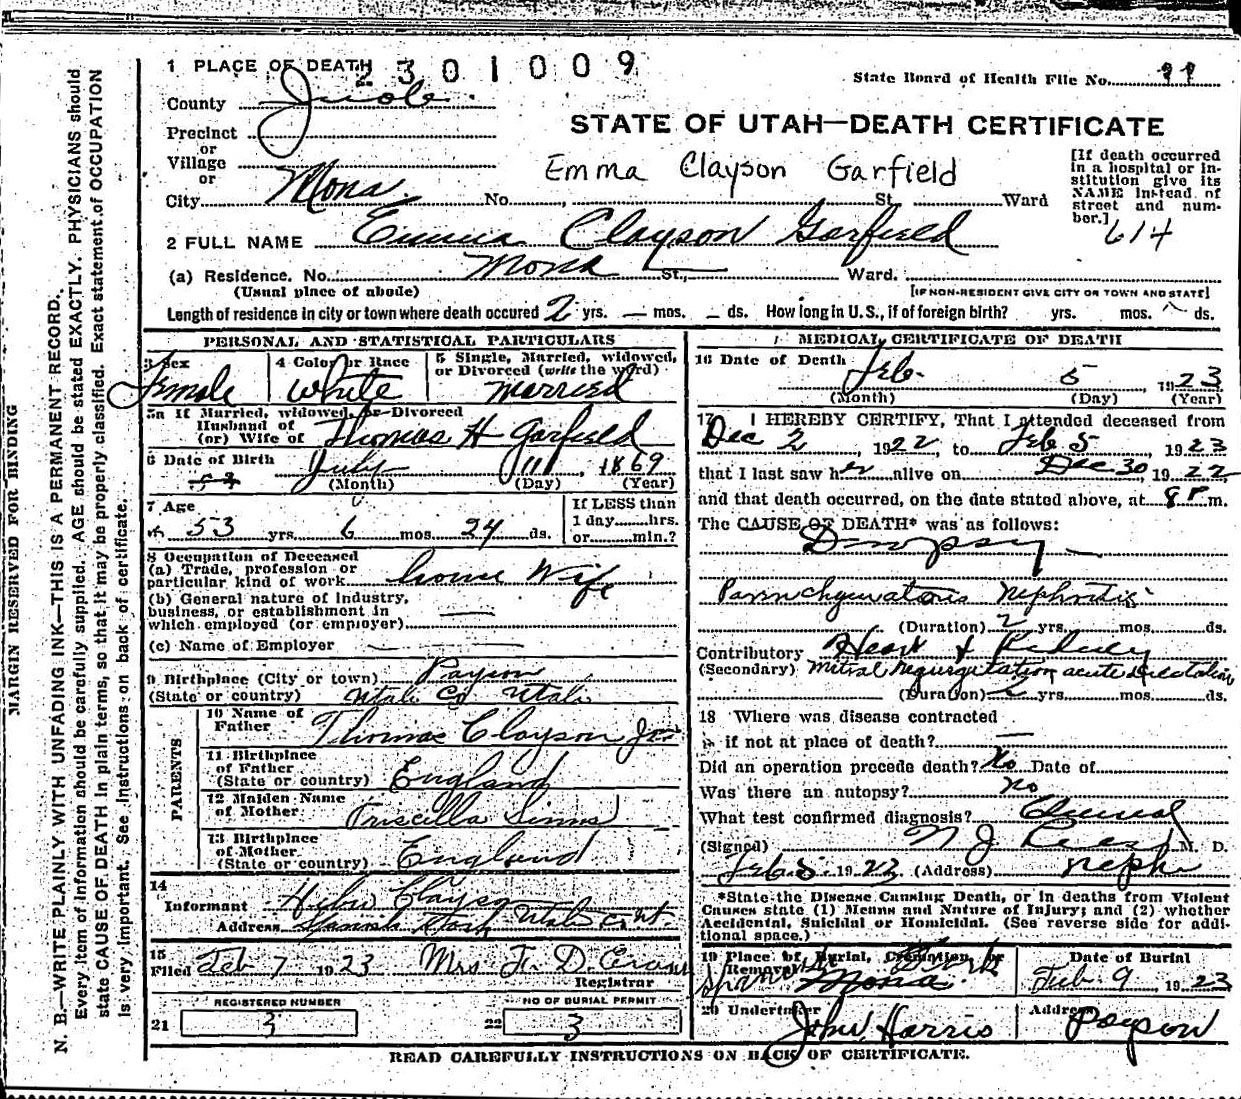 1 PLACE OF DEATH
2301009
State Board of Health File No. 99
County Juab
Precinct
or
Village
or
City Mona No. St. Ward
STATE OF UTAH—DEATH CERTIFICATE
Emma Clayson Garfield
[If death occurred in a hospital or institution give its NAME instead of street and number.]
614
2 FULL NAME Emma Clayson Garfield
(a) Residence. No. Mona St., Ward.
(Usual place of abode) [IF NON-RESIDENT GIVE CITY OR TOWN AND STATE]
Length of residence in city or town where death occured 2 yrs. — mos. — ds. How long in U.S., if of foreign birth? yrs. mos. ds.
PERSONAL AND STATISTICAL PARTICULARS
3 Sex Female
4 Color or Race White
5 Single, Married, widowed, or Divorced (write the word) Married
5a If Married, widowed, or Divorced
Husband of
(or) Wife of Thomas H Garfield
6 Date of Birth July 11, 1869
(Month) (Day) (Year)
7 Age
53 yrs. 6 mos. 24 ds.
If LESS than
1 day......hrs.
or......min.?
8 Occupation of Deceased
(a) Trade, profession or
particular kind of work House Wife
(b) General nature of Industry,
business, or establishment in
which employed (or employer)
(c) Name of Employer
9 Birthplace (City or town) Payson
(State or country) Utah Co Utah
PARENTS
10 Name of
Father Thomas Clayson
11 Birthplace
of Father
(State or country) England
12 Maiden Name
of Mother Priscilla Simms
13 Birthplace
of Mother
(State or country) England
14
Informant Clayson
Address Spanish Fork Utah
15
Filed Feb 7 1923 Mrs F. D. Evans
Registrar
REGISTERED NUMBER
21 3
NO OF BURIAL PERMIT
22 3
MEDICAL CERTIFICATE OF DEATH
16 Date of Death Feb. 5, 1923
(Month) (Day) (Year)
17 I HEREBY CERTIFY, That I attended deceased from
Dec 2, 1922, to Feb 5, 1923
that I last saw her alive on Dec 30, 1922,
and that death occurred, on the date stated above, at 8 P.m.
The CAUSE OF DEATH* was as follows:
Dropsy —
Parinchymatous Nephritis
(Duration) 2 yrs. mos. ds.
Contributory Heart & Kidney
(Secondary) Mitral Regurgitation acute
(Duration) 2 yrs. mos. ds.
18 Where was disease contracted
if not at place of death? —
Did an operation precede death? No Date of
Was there an autopsy? no
What test confirmed diagnosis? Clinical
(Signed) N J Rees M. D.
Feb 5 1923. (Address) Nephi
*State the Disease Causing Death, or in deaths from Violent
Causes state (1) Means and Nature of Injury; and (2) whether
Accidental, Suicidal or Homicidal. (See reverse side for addi-
tional space.)
19 Place of Burial, Cremation, or
Removal Span Fork Mona
Date of Burial
Feb. 9, 1923
20 Undertaker John Harris
Address Payson
READ CAREFULLY INSTRUCTIONS ON BACK OF CERTIFICATE.
MARGIN RESERVED FOR BINDING
N. B.—WRITE PLAINLY WITH UNFADING INK—THIS IS A PERMANENT RECORD.
Every item of information should be carefully supplied. AGE should be stated EXACTLY. PHYSICIANS should
state CAUSE OF DEATH in plain terms, so that it may be properly classified. Exact statement of OCCUPATION
is very important. See instructions on back of certificate.